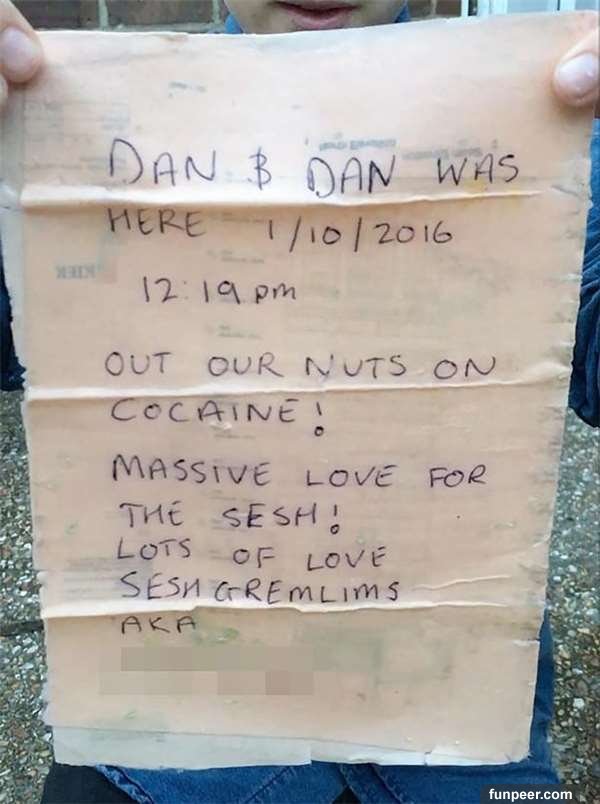 DAN & DAN WAS
HERE 1/10/2016
12:19 pm
OUT OUR NUTS ON
COCAINE!
MASSIVE LOVE FOR
THE SESH!
LOTS OF LOVE
SESH GREMLIMS
AKA
funpeer.com